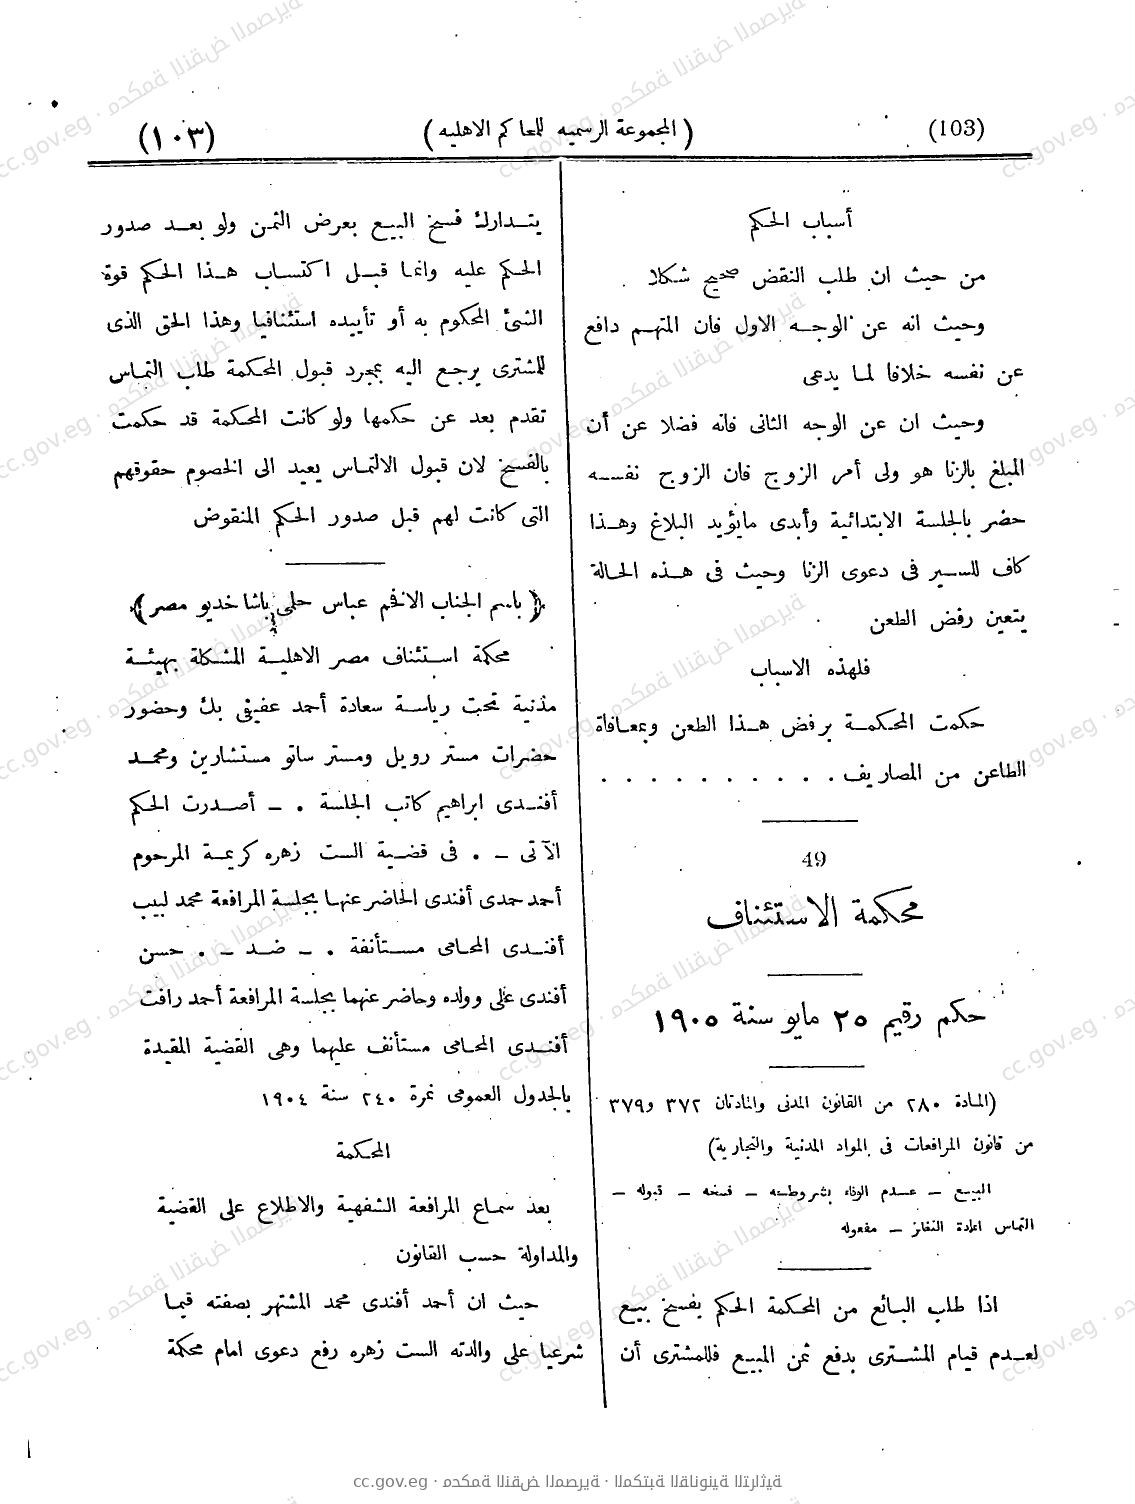 (103)
( المجموعة الرسميه للمحاكم الاهليه )
(١٠٣)
أسباب الحكم
من حيث ان طلب النقض صحيح شكلا .
وحيث انه عن الوجه الاول فان المتهم دافع
عن نفسه خلافا لما يدعى
وحيث ان عن الوجه الثانى فانه فضلا عن أن
المبلغ بالزنا هو ولى أمر الزوج فان الزوج نفسه
حضر بالجلسة الابتدائية وأبدى مايؤيد البلاغ وهذا
كاف للسير فى دعوى الزنا وحيث فى هذه الحالة
يتعين رفض الطعن .
فلهذه الاسباب
حكمت المحكمة برفض هذا الطعن وبمعافاة
الطاعن من المصاريف . . . . . . . . . .
49
محكمة الاستئناف
حكم رقيم ٢٥ مايو سنة ١٩٠٥
(المادة ٢٨٠ من القانون المدنى والمادتان ٣٧٢ و٣٧٩
من قانون المرافعات فى المواد المدنية والتجارية)
البيع – عدم الوفاء بشروطه – فسخه – قبوله –
التماس اعادة النظر – مفعوله
اذا طلب البائع من المحكمة الحكم بفسخ بيع
لعدم قيام المشترى بدفع ثمن المبيع فللمشترى أن
يتدارك فسخ البيع بعرض الثمن ولو بعد صدور
الحكم عليه وانما قبل اكتساب هذا الحكم قوة
الشئ المحكوم به أو تأييده استئنافيا وهذا الحق الذى
للمشترى يرجع اليه بمجرد قبول المحكمة طلب التماس
تقدم بعد عن حكمها ولو كانت المحكمة قد حكمت
بالفسخ لان قبول الالتماس يعيد الى الخصوم حقوقهم
التى كانت لهم قبل صدور الحكم المنقوض
﴿ باسم الجناب الافخم عباس حلمى باشا خديو مصر ﴾
محكمة استئناف مصر الاهلية المشكلة بهيئة
مدنية تحت رياسة سعادة أحمد عفيفى بك وحضور
حضرات مستر رويل ومستر ساتو مستشارين ومحمد
أفندى ابراهيم كاتب الجلسة . – أصدرت الحكم
الآتى – . فى قضية الست زهره كريمة المرحوم
أحمد حمدى أفندى الحاضر عنها بجلسة المرافعة محمد لبيب
أفندى المحامى مستأنفة . – ضد – . حسن
أفندى على وولده وحاضر عنهما بجلسة المرافعة أحمد رافت
أفندى المحامى مستأنف عليهما وهى القضية المقيدة
بالجدول العمومى نمرة ٢٤٠ سنة ١٩٠٤
المحكمة
بعد سماع المرافعة الشفهية والاطلاع على القضية
والمداولة حسب القانون .
حيث ان أحمد أفندى محمد المشتهر بصفته قيما
شرعيا على والدته الست زهره رفع دعوى امام محكمة
cc.gov.eg · محكمة النقض المصرية · المكتبة القانونية التراثية